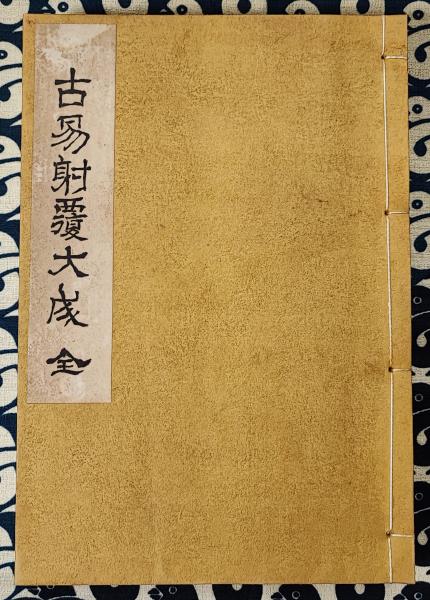 古易射覆大成 全